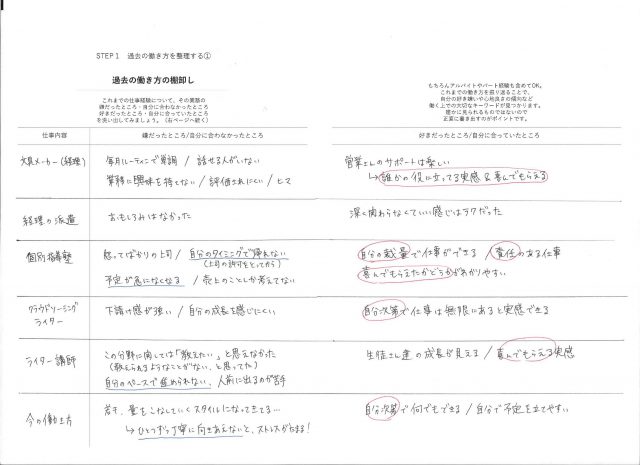 STEP1 過去の働き方を整理する①
過去の働き方の棚卸し
これまでの仕事経験について、その実際の
嫌だったところ・自分に合わなかったところ
好きだったところ・自分に合っていたところ
を洗い出してみましょう。（右ページへ続く）
もちろんアルバイトやパート経験も含めてOK。
これまでの働き方を振り返ることで、
自分の好き嫌いや心地良さの傾向など
働く上での大切なキーワードが見つかります。
誰かに見られるものではないので
正直に書き出すのがポイントです。
仕事内容
嫌だったところ/自分に合わなかったところ
好きだったところ/自分に合っていたところ
文具メーカー(経理)
毎月ルーティンで単調 / 話せる人がいない
業務に興味を持てない / 評価されにくい / ヒマ
営業さんのサポートは楽しい
↳誰かの役に立ってる実感&喜んでもらえる
経理の派遣
おもしろみはなかった
深く関わらなくていい感じはラクだった
個別指導塾
怒ってばかりの上司 / 自分のタイミングで帰れない
(上司の許可をとってから)
予定が急になくなる / 売上のことしか考えてない
自分の裁量で仕事ができる / 責任のある仕事
喜んでもらえたかどうかがわかりやすい
クラウドソーシング
ライター
下請け感が強い / 自分の成長を感じにくい
自分次第で仕事は無限にあると実感できる
ライター講師
この分野に関しては「教えたい」と思えなかった
(教えられるようなことがない、と思ってた)
自分のペースで進められない、人前に出るのが苦手
生徒さん達の成長が見える / 喜んでもらえる実感
今の働き方
若干、量をこなしていくスタイルになってきてる…
↳ひとつずつ丁寧に向きあえないと、ストレスがたまる!
自分次第で何でもできる / 自分で予定を立てやすい